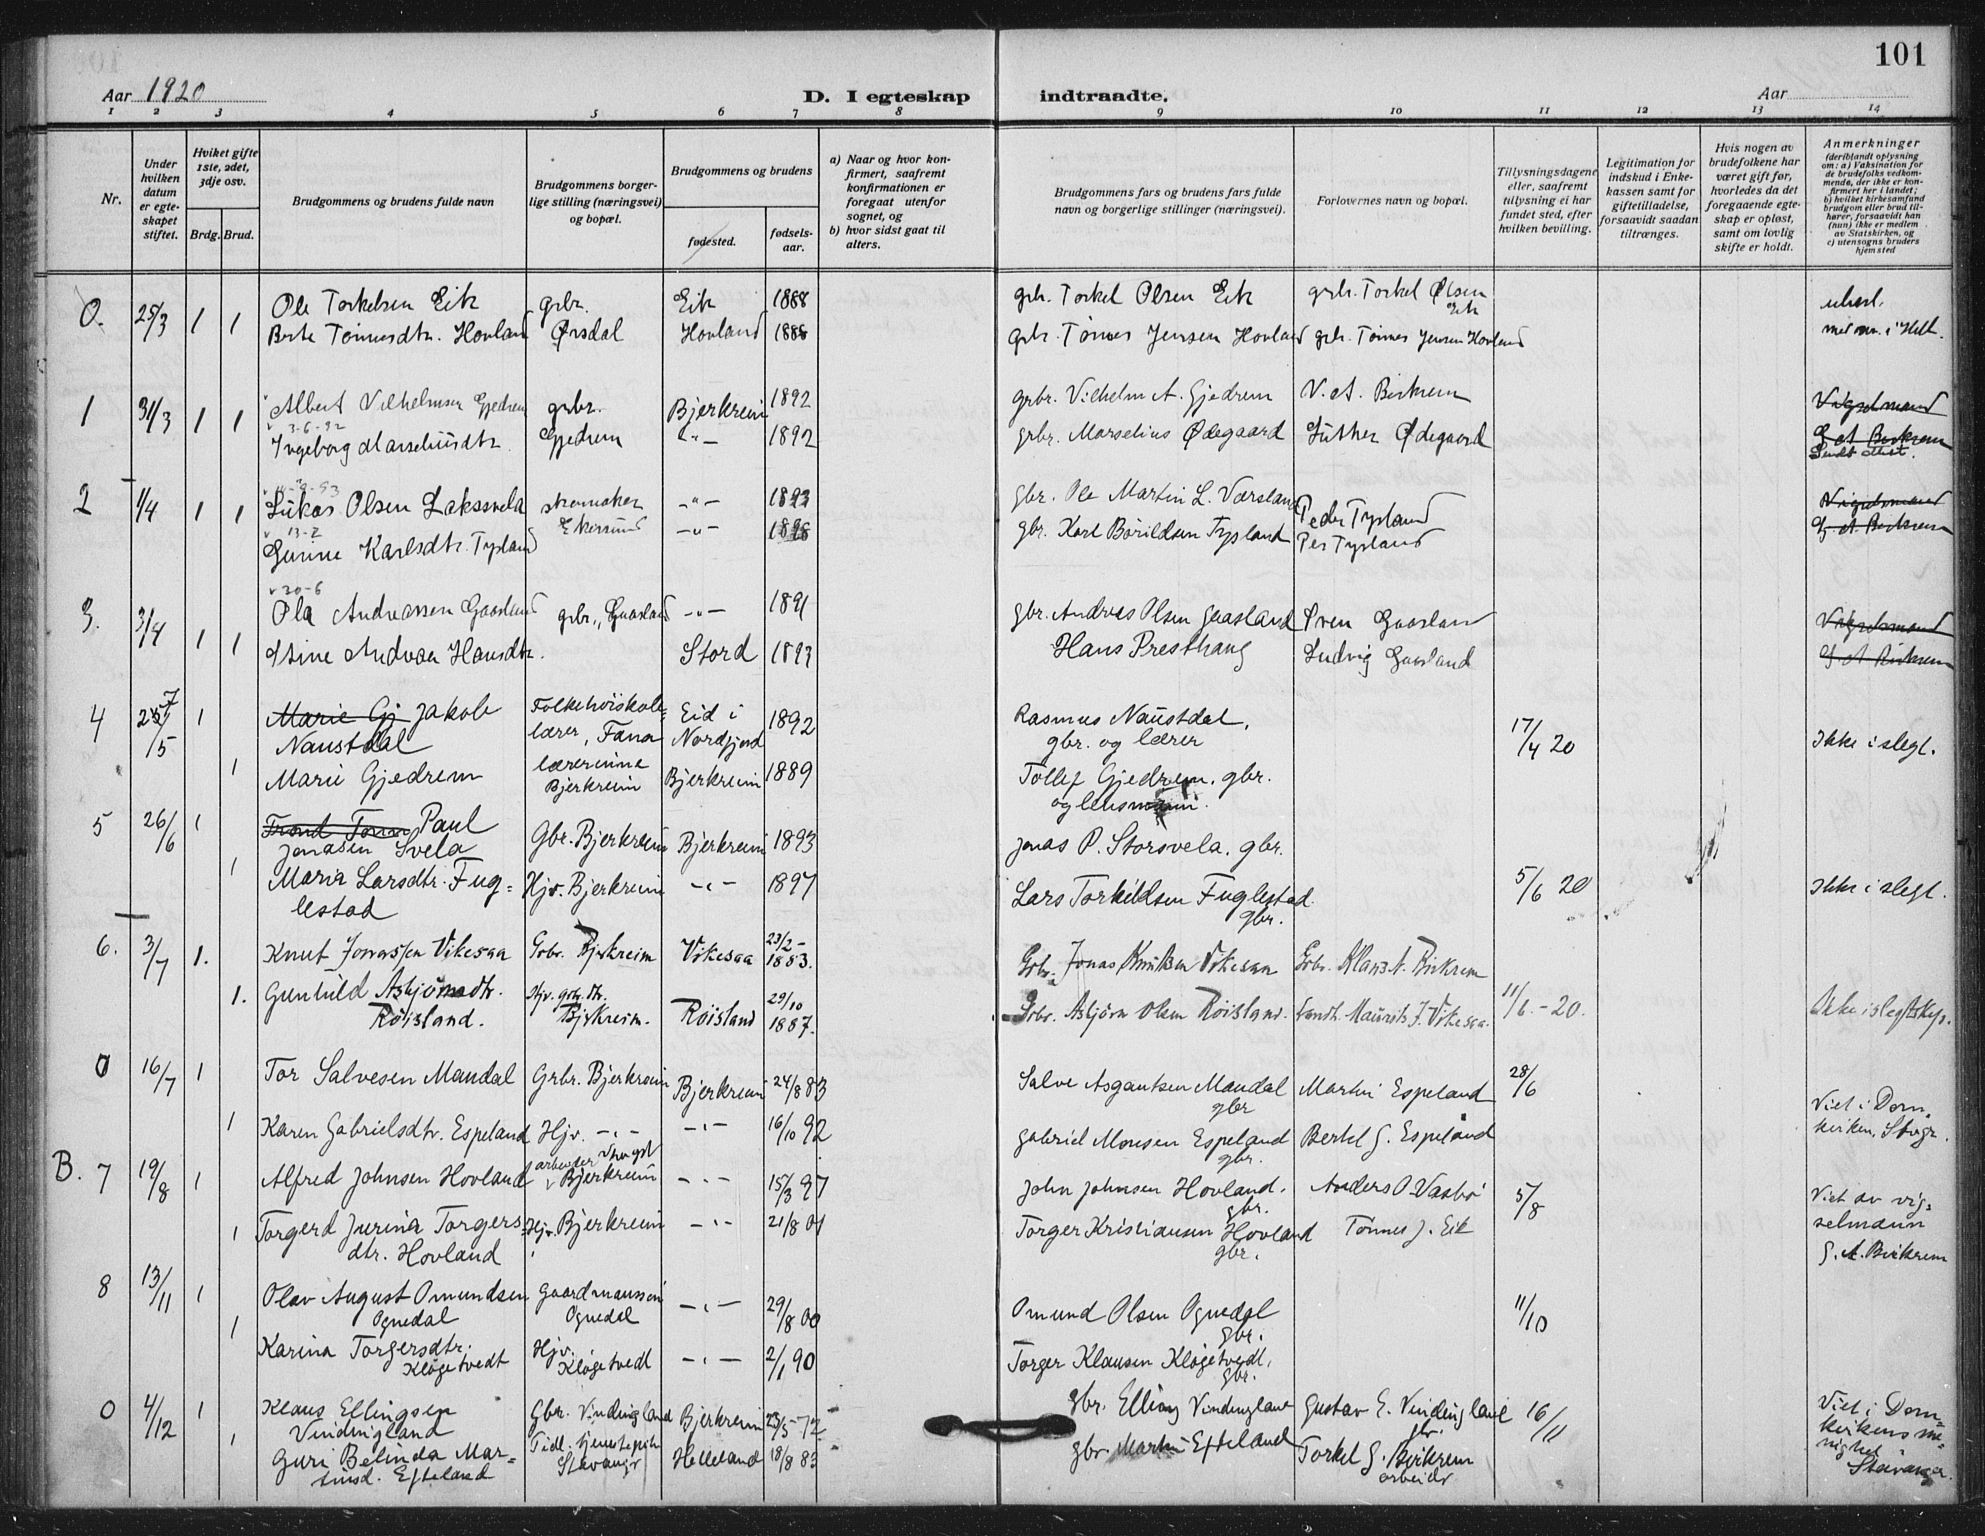 101
Aar 1920
D. I egteskap indtraadte.
Aar
1 2 3 4 5 6 7 8 9 10 11 12 13 14
Nr.
Under hvilken datum er egteskapet stiftet.
Hviket gifte 1ste, 2det, 3dje osv.
Brdg. Brud.
Brudgommens og brudens fulde navn
Brudgommens borgerlige stilling (næringsvei) og bopæl.
Brudgommens og brudens
fødested.
fødselsaar.
a) Naar og hvor konfirmert, saafremt konfirmationen er foregaat utenfor sognet, og
b) hvor sidst gaat til alters.
Brudgommens fars og brudens fars fulde navn og borgerlige stillinger (næringsvei).
Forlovernes navn og bopæl.
Tillysningsdagene eller, saafremt tillysning ei har fundet sted, efter hvilken bevilling.
Legitimation for indskud i Enkekassen samt for giftetilladelse, forsaavidt saadan tiltrænges.
Hvis nogen av brudefolkene har været gift før, hvorledes da det foregaaende egteskap er opløst, samt om lovlig skifte er holdt.
Anmerkninger
(deriblandt oplysning om: a) Vaksination for de brudefolks vedkommende, der ikke er konfirmert her i landet; b) hvilket kirkesamfund brudgom eller brud tilhører, forsaavidt han (hun) ikke er medlem av Statskirken, og c) utensogns bruders hjemsted
0. 25/3 1 Ole Torkelsen Eik grbr. Eik 1888 grb. Torkel Olsen Eik grb. Torkel Olsen Eik
1 Berte Tønnesdtr. Hovland Ørsdal Hovland 1886 grb. Tønnes Jensen Hovland grb. Tønnes Jensen Hovland
1 31/3 1 Albert Vilhelmsen Gjedrem grbr. Bjerkreim 1892 grbr. Vilhelm A. Gjedrem V. A. Birkrem Vigselmand
3-6-92
1 Ingeborg Marseliusdtr. Gjedrem -"- 1892 grbr. Marselius Ødegaard Luther Ødegaard G A Birkrem
Sendt attest.
2 1/4 1 Lukas Olsen Lakssvela skomaker -"- 1893 gbr. Ole Martin L. Værsland Peder Tysland Vigselsmand
13-2
1 Gunne Karlsdtr. Tysland Ekersund -"- 1896 gbr. Karl Bårildsen Tysland Per Tysland G. A. Birkrem
20-6
3. 3/4 1 Ola Andreassen Gaasland grbr., Gaasland -"- 1891 gbr. Andreas Olsen Gaasland Sven Gaasland Vigselsmand
1 Stine Andrea Hansdtr. Stord 1893 Hans Presthaug Ludvig Gaasland G A Birkrem
4 27/5 1 Marie Gj Jakob Naustdal Folkehøiskolelærer, Fana Eid i Nordfjord 1892 Rasmus Naustdal, gbr. og lærer 17/4 20 Ikke i slegt.
1 Marie Gjedrem lærerinne Bjerkreim Bjerkreim 1889 Tollef Gjedrem, gbr. og lensmann.
5 26/6 1 Trond Tornm Paul Jonasen Svela Gbr. Bjerkreim Bjerkreim 1893 Jonas P. Storsvela, gbr.
1 Maria Larsdtr. Fuglestad Hjv. Bjerkreim -"- 1897 Lars Torkildsen Fuglestad gbr. 5/6 20 Ikke i slegt.
6. 3/7 1. Knut Jonassen Vikesaa Grbr. Bjerkreim Vikesaa 23/2-1883. Grbr. Jonas Knutsen Vikesaa Grbr. Klaus A. Birkrem
1. Gunhild Asbjørnsdtr. Røisland. Hjv. grbr. dtr. Bjerkreim. Røisland 29/10 1887. Grbr. Asbjørn Olsen Røisland. Landh. Maurits J. Vikesaa. 11/6.-20. Ikke i slegtskap.
0 16/7 1 Tor Salvesen Maudal Grbr. Bjerkreim Bjerkreim 24/8 83 Salve Asgautsen Maudal gbr Martin Espeland 28/6
1 Karen Gabrielsdtr. Espeland Hjv. -"- -"- 16/10 92 Gabriel Monsen Espeland gbr. Bertel G. Espeland Viet i Domkirken, Stvgr.
B. 7 19/8 1 Alfred Johnsen Hovland arbeider Bjerkreim -"- 15/3 97 John Johnsen Hovland. gbr. Anders O. Vasbø 5/8 Viet av vigselmann
1 Torgerd Jurina Torgersdtr. Hovland Hjv. Bjerkreim -"- 21/8 01 Torger Kristiansen Hovland gbr. Tønnes J. Eik G. A. Birkrem
8 13/11 1 Olav August Omundsen Ognedal Gaardmannssøn Ognedal -"- 29/8 00 Omund Olsen Ognedal gbr. 11/10
1 Karina Torgersdtr. Kløgetvedt Hjv. Kløgetvedt -"- 2/1 90 Torger Klausen Kløgetvedt, gbr.
0 4/12 1 Klaus Ellingsen Vindingland Gbr. Vindingland Bjerkreim 23/5-72 gbr. Elling Vindingland Gustav E. Vindingland gbr. 16/11 Viet i Domkirkens menighet
1 Guri Belinda Martinsd. Efteland Tidl. tjenestepike Stavangr Helleland 18/8 83 gbr. Martin Efteland Torkel G. Birkrem arbeider Stavanger.